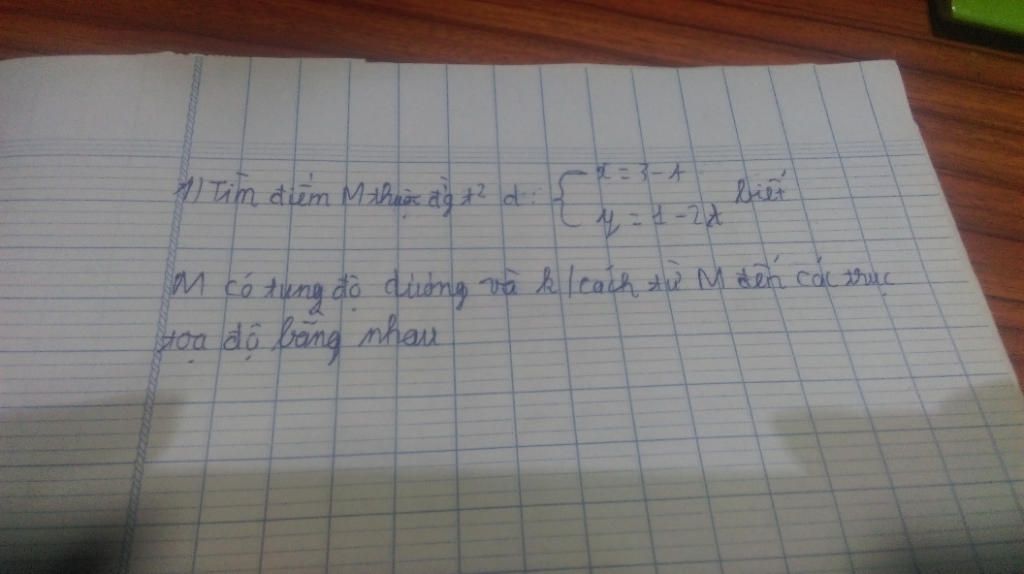 1) Tìm điểm M thuộc đg t² d: { x = 3 - t
y = 1 - 2t biết
M có tung độ dương và k/cách từ M đến các trục
tọa độ bằng nhau